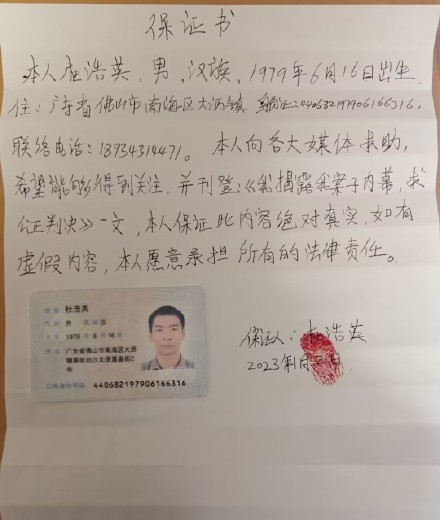 保证书
本人杜浩英，男，汉族，1979年6月16日出生，
住：广东省佛山市南海区大沥镇，身份证：440682197906166316，
联络电话：18934314471。本人向各大媒体求助，
希望能够得到关注，并刊登《我揭露我案子内幕，求
公证判决》一文，本人保证此内容绝对真实，如有
虚假内容，本人愿意承担所有的法律责任。
保证人：杜浩英
2023年
姓名 杜浩英
性别 男 民族 汉
出生 1979年6月16日
住址 广东省佛山市南海区大沥
号
公民身份号码 440682197906166316